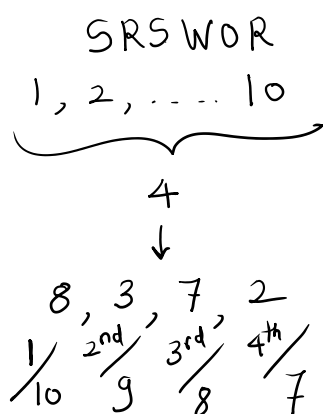 SRSWOR
1, 2, ..... 10
4
8, 3, 7, 2
1/10 2nd/9 3rd/8 4th/7